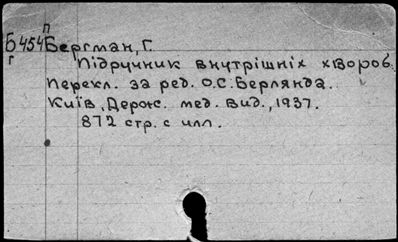 П
Б454 Бергман, Г.
Г
Підручник внутрішніх хвороб.
Перекл. за ред. О.С.Берлянда.
Київ, Держ. мед. вид., 1937.
872 стр. с илл.